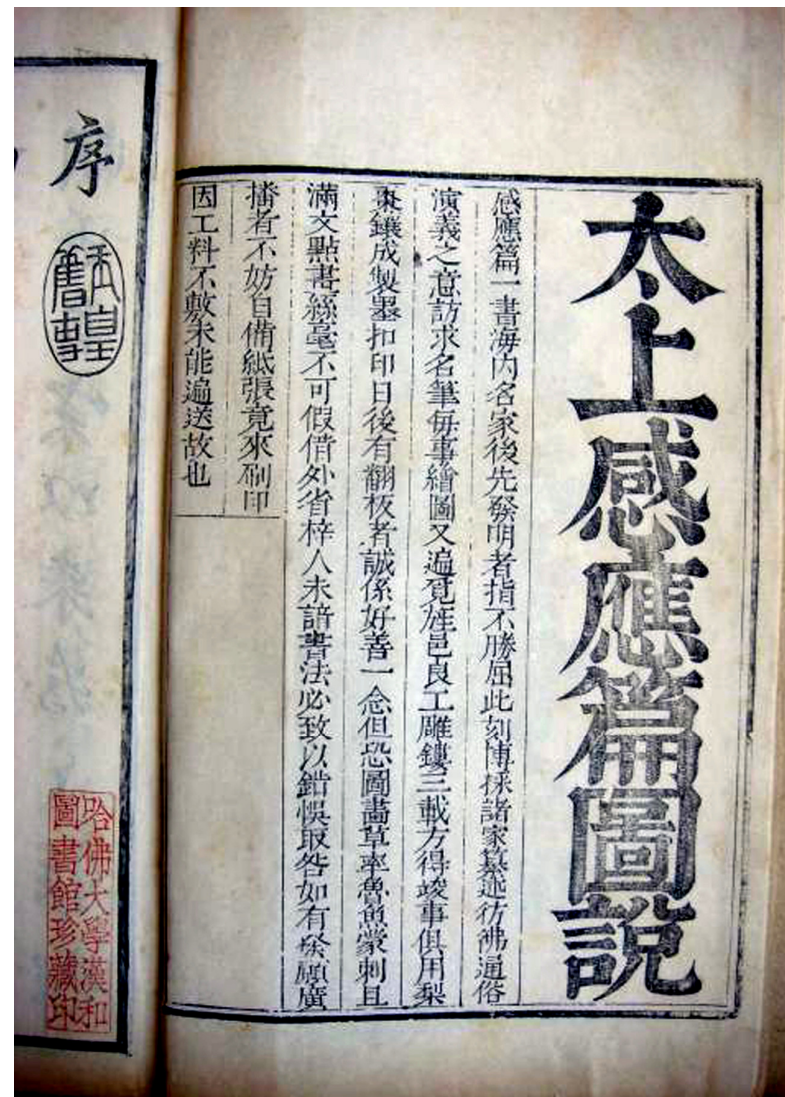 太上感應篇圖說
感應篇一書海內名家後先發明者指不勝屈此刻博採諸家纂述彷彿通俗
演義之意訪求名筆每事繪圖又遍覓旌邑良工雕鏤三載方得竣事俱用梨
棗鑲成製墨扣印日後有翻板者誠係好善一念但恐圖畫草率魯魚蒙刺且
滿文點畫絲毫不可假借外省梓人未諳書法必致以錯悞取咎如有發願廣
播者不妨自備紙張竟來刷印
因工料不敷未能遍送故也
序
哈佛大學漢和
圖書館珍藏印